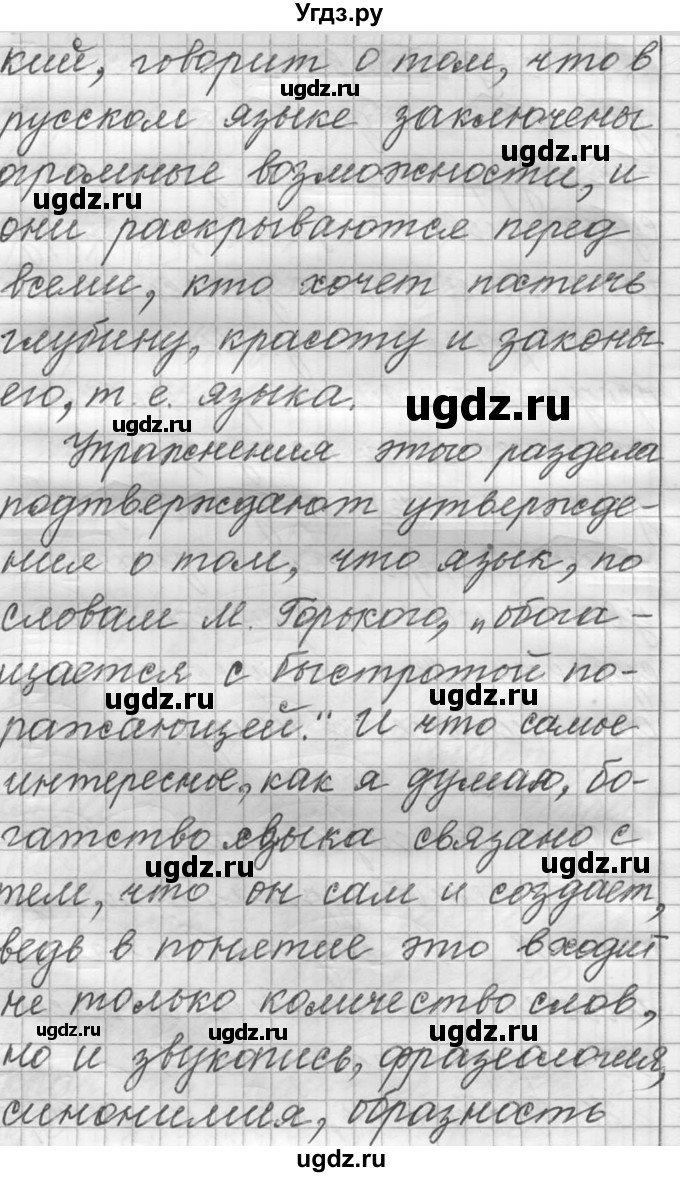 Угдз.ру
кий, говорит о том, что в
ugdz.ru
русском языке заключены
ugdz.ru
огромные возможности, и
ugdz.ru
они раскрываются перед
всеми, кто хочет постичь
глубину, красоту и законы
его, т. е. языка.
ugdz.ru
ugdz.ru
Упражнения этого раздела
подтверждают утвержде-
ния о том, что язык, по
словам М. Горького, „обога-
щается с быстротой по-
ugdz.ru
ugdz.ru
ражающей." И что самое
интересное, как я думаю, бо-
гатство языка связано с
ugdz.ru
ugdz.ru
тем, что он сам и создает,
ведь в понятие это входит
не только количество слов,
ugdz.ru
ugdz.ru
ugdz.ru
но и звукопись, фразеология,
синонимия, образность
ugdz.ru